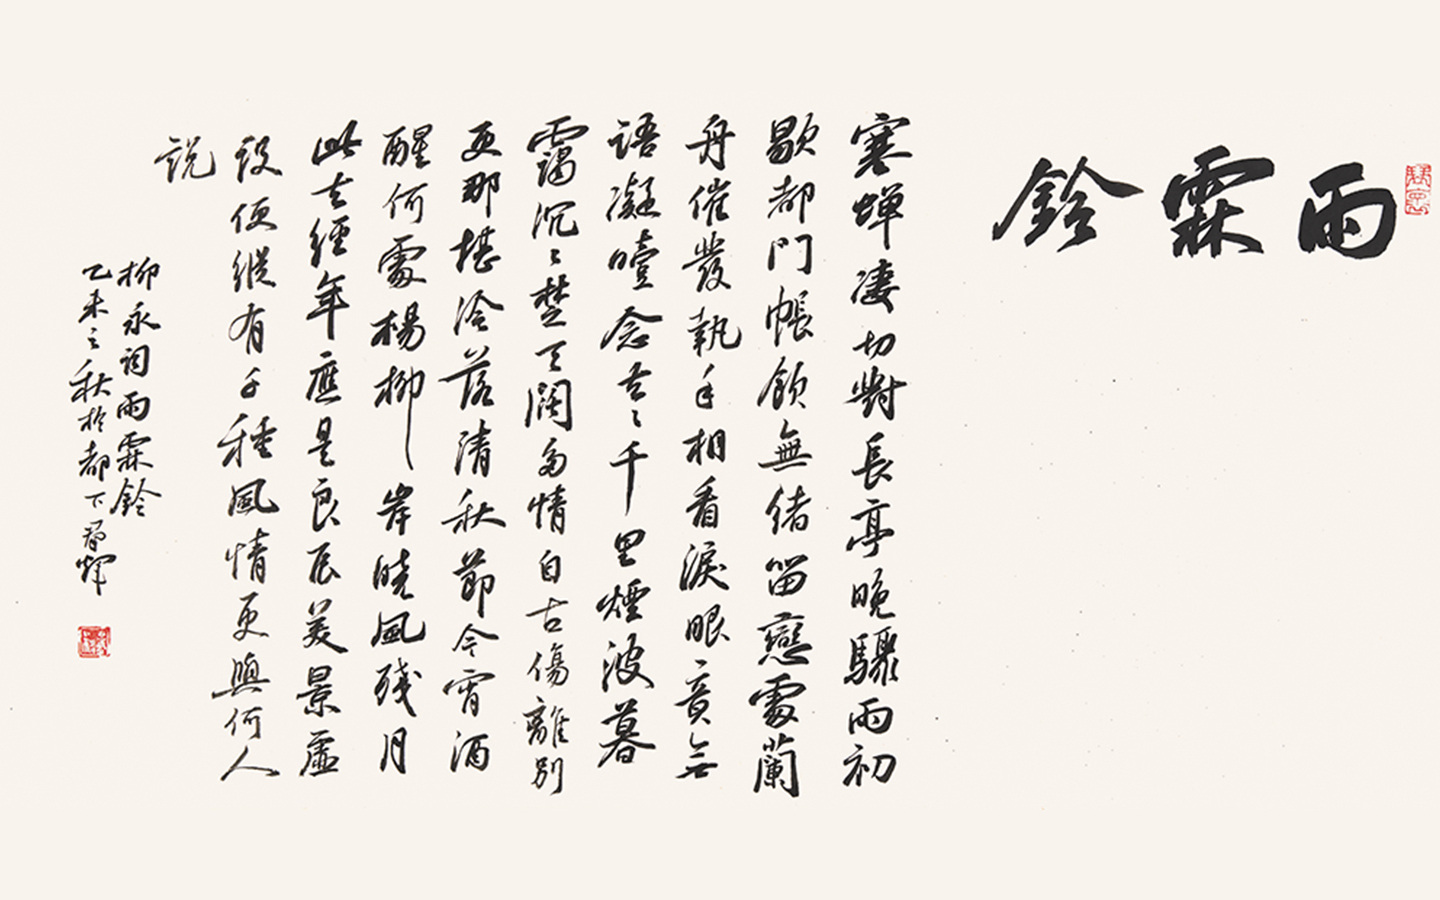 雨霖鈴
寒蟬凄切對長亭晚驟雨初
歇都門帳飲無緒留戀處蘭
舟催發執手相看淚眼竟無
語凝噎念去々千里煙波暮
靄沉々楚天闊多情自古傷離別
更那堪冷落清秋節今宵酒
醒何處楊柳岸曉風殘月
此去經年應是良辰美景虛
設便縱有千種風情更與何人
説
柳永詞雨霖鈴
乙未之秋於都下